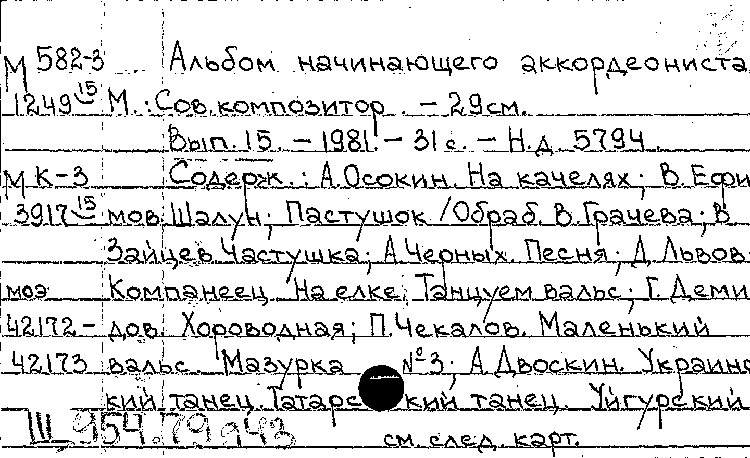 М 582-3 Альбом начинающего аккордеониста
1249 15 М.: Сов. композитор. – 29см.
Вып. 15. – 1981. – 31 с. – Н.д. 5794.
М К-3 Содерж.: А.Осокин. На качелях; В. Ефи
3917 15 мов. Шалун; Пастушок /Обраб. В.Грачева; В
Зайцев. Частушка; А.Черных. Песня; Д. Львов-
моэ Компанеец. На елке; Танцуем вальс; Г. Деми
42172- дов. Хороводная; П.Чекалов. Маленький
42173 вальс. Мазурка №3; А.Двоскин. Украинс
кий танец. Татарский танец. Уйгурский
Ш 954.79943 см. след. карт.